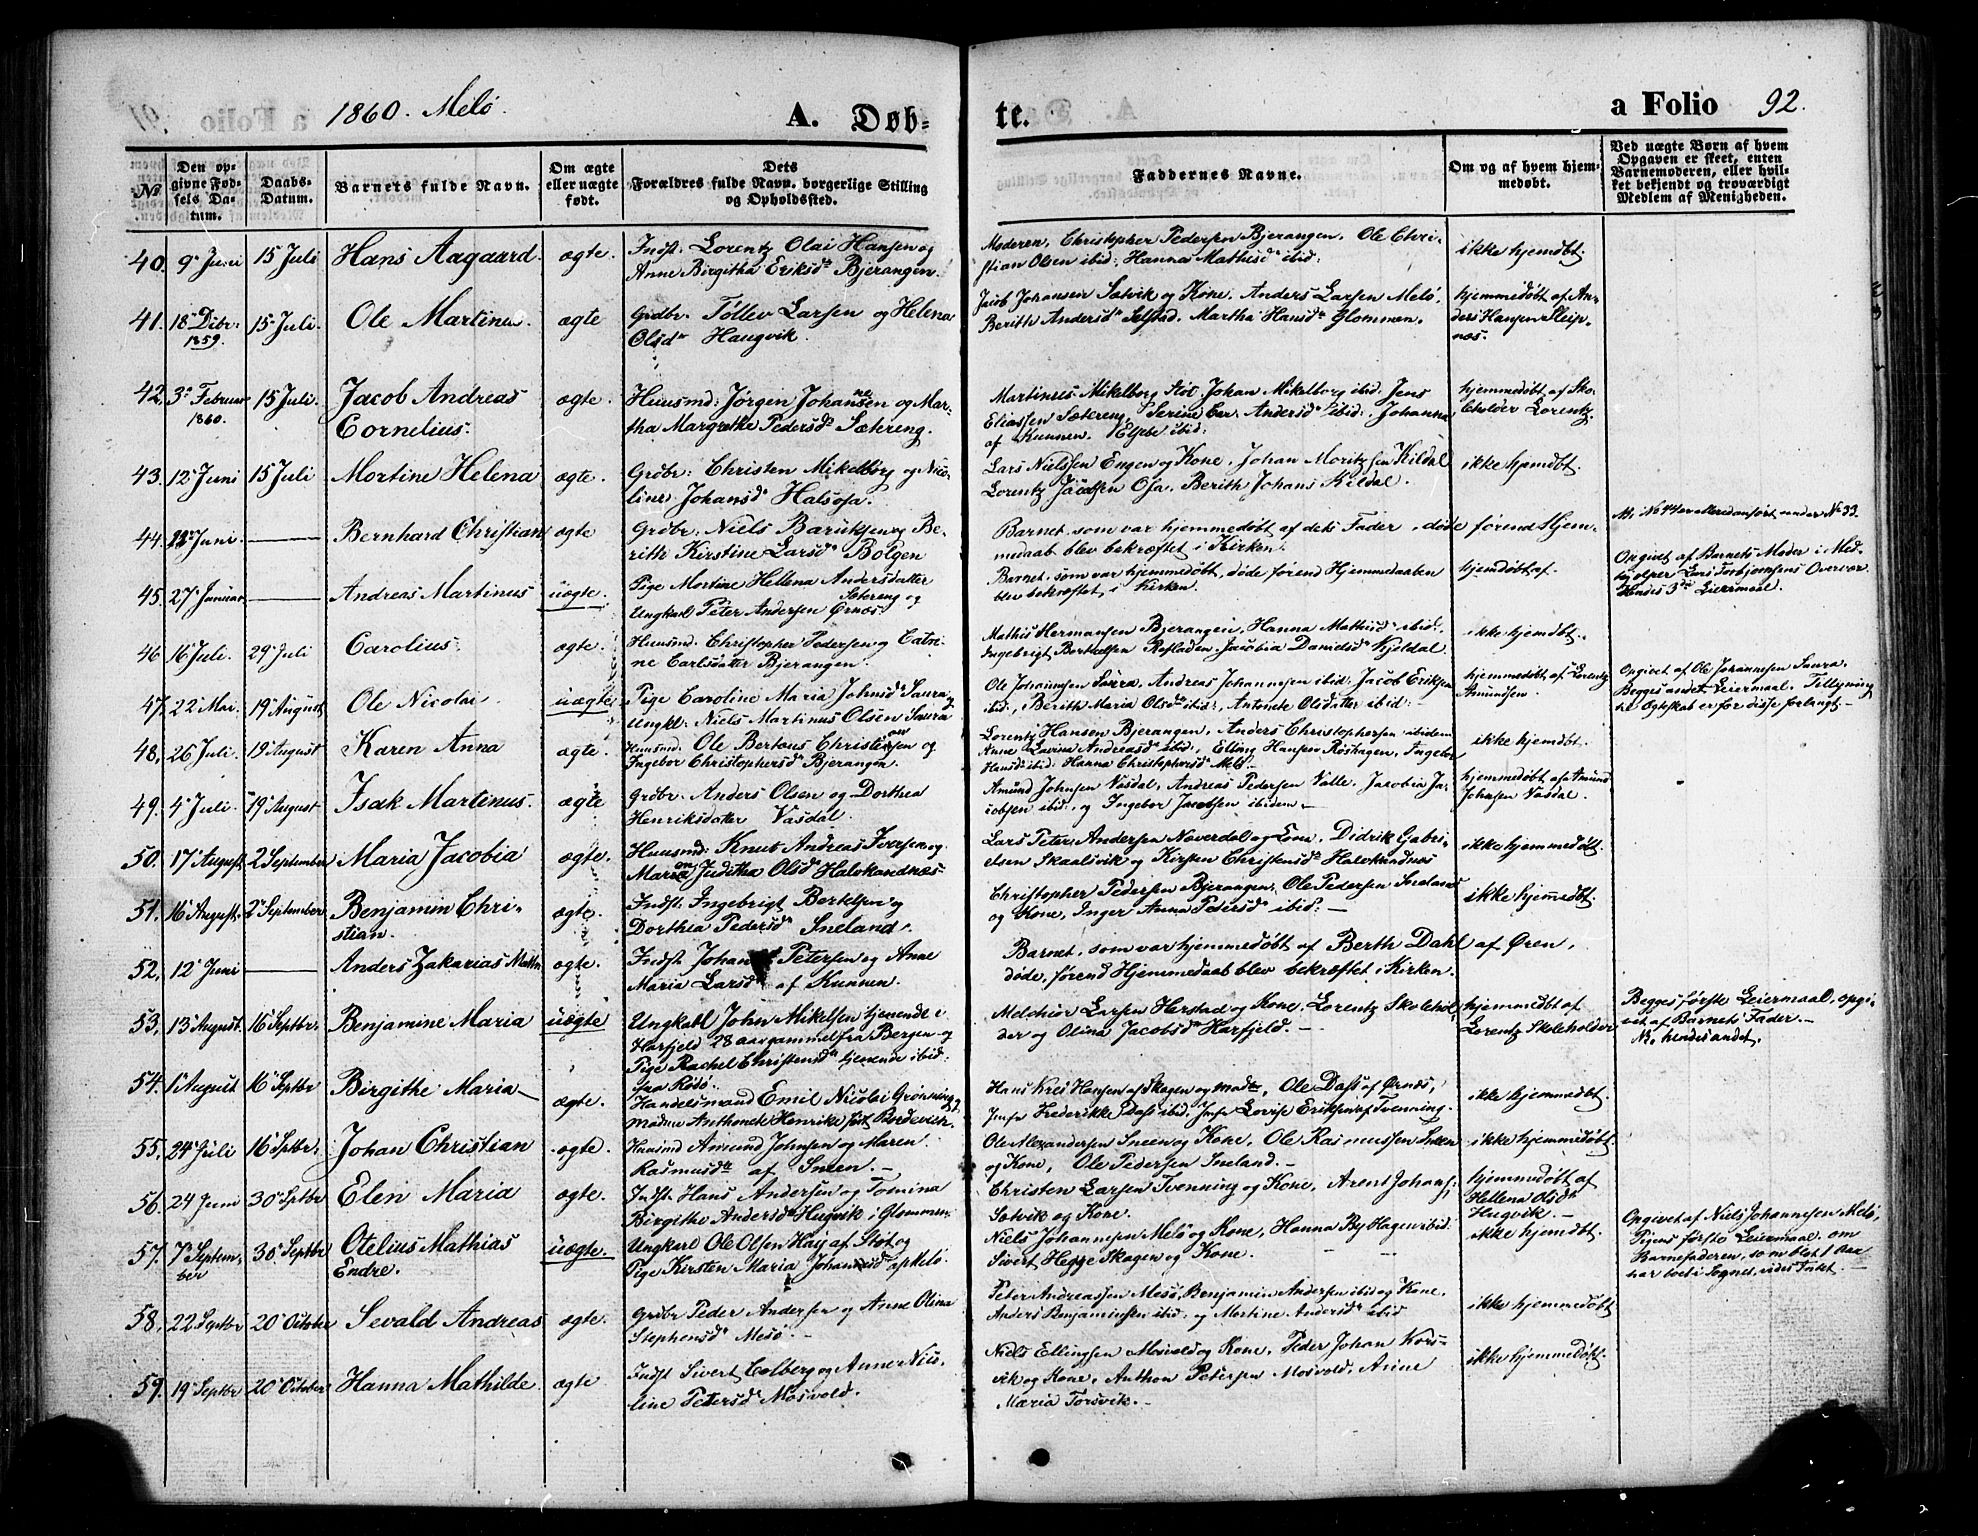 1860. Melö. A. Døb= te. a Folio 92.
№ Den opgivne Fødsels Datum. Daabs-Datum. Barnets fulde Navn. Om ægte eller uægte født. Dets Forældres fulde Navn, borgerlige Stilling og Opholdssted. Faddernes Navne. Om og af hvem hjemmedøbt. Ved uægte Børn af hvem Opgaven er skeet, enten Barnemoderen, eller hvilket bekjendt og troværdigt Medlem af Menigheden.
40. 9de Juni 15 Juli Hans Aagaard. ægte. Indst. Lorentz Olai Hansen og
Anne Birgitha Eriksdr Bjerangen.
Moderen, Christopher Pedersen Bjerangen, Ole Chri-
stian Olsen ibid: Hanna Mathisdr ibid:
ikke hjemdöbt.
41. 18 Dcbr. 1859. 15 Juli. Ole Martinus. ægte Grdbr. Tollev Larsen og Helena
Olsdr Haugvik.
Jacob Johansen Sætvik og Kone, Anders Larsen Melö,
Berith Andersdr Selstad, Martha Hansdr Glommen.
hjemmedöbt af An-
ders Hansen Sleip-
næs.
42. 3. Februar 1860. 15 Juli. Jacob Andreas
Cornelius.
ægte Huusmd: Jørgen Johansen og Mar-
tha Margrethe Pedersdr Sætreng.
Martines Mikelborg Stot. Johan Mikelborg ibid. Jens
Eliassen Sætereng, Serine Andersdr ibid. Johanna
af Kunnen. Elsebe ibid:
hjemmedöbt af Sko-
leholder Lorentz.
43. 12 Juni 15 Juli Mortine Helena ægte. Grdbr: Christen Mikelborg og Nico-
line Johansdr Halsosa.
Lars Nielsen Engen og Kone, Johan Moritzsen Kildal
Lorentz Jacobsen Osa. Berith Johans Kildal.
ikke hjemdöbt.
44. 22 Juni. — Bernhard Christian ægte Grdbr. Niels Baruksen og Be-
rith Kirstine Larsdr Bolgen
Barnet, som var hjemmedöbt af dets Fader, döde förend Hjem-
medaab blev bekræftet i Kirken.
45. 27 Januar — Andreas Martinus uægte. Pige Mortine Hellena Andersdatter
Sætereng og
Ungkarl Peter Andersen Ørnæs.
Barnet, som var hjemmedöbt, döde förend Hjemmedaaben
blev bekræftet i Kirken.
hjemdöbt af
Opgivet af Barnets Moder i Med-
hjelper Lars Torbjørnsens Overvær
Hendes 3die Leiermaal.
46 16 Juli. 29 Juli Carolius. ægte. Huusmd: Christopher Pedersen og Catri-
ne Carlsdatter Bjerangen.
Mathis Hermansen Bjerangen, Hanna Mathisdr ibid:
Ingebrigt Berthelsen Jacobia Danielsdr Kjeldal.
ikke hjemdöbt.
47. 22 Mai. 19 August Ole Nicolai uægte Pige Caroline Maria Johnsdr Saura og
Ungkl: Niels Martinus Olsen Saura
Ole Johannsen Saura, Andreas Johannsen ibid: Jacob Eriksen
ibid:, Berith Maria Olsdr ibid:, Antonete Olsdatter ibid:
hjemmedöbt af Lorentz
Amundsen.
Opgivet af Ole Johannessen Saura.
Begges andet Leiermaal. Tillysning
til Ægteskab er for disse forlangt.—
48. 26 Juli 19 August Karen Anna ægte. Huusmd: Ole Bertous Christensen og
Ingebor Christophersdr Bjerangen.
Lorentz Hansen Bjerangen, Anders Christophersen ibidem
Anne Lavina Andreasdr ibid:, Elling Hansen Röshagen, Ingebor
Hansdr ibid: Hanna Christophersdr Melö.
ikke hjemdöbt.
49. 4 Juli. 19 August Isak Martinus. ægte Grdbr: Anders Olsen og Dorthea
Henriksdatter Vasdal.
Amund Johnsen Vasdal, Andreas Pedersen Valle, Jacobia Ja-
cobsen ibid:, og Ingebor Jacobsen ibidem.—
hjemmedöbt af Amund
Johnsen Vasdal.
50. 17 August 2 September Maria Jacobia ægte. Huusmd: Knut Andreas Iversen og
Maria Juditha Olsdr Halvkandnæs
Lars Peter Andersen Naverdal og Kone, Didrik Gabri-
elsen Skaalsvik og Kirsten Christensdr Halvkandnæs
ikke hjemmedöbt.
51. 16 August 2 September Benjamin Chri-
stian.
ægte Indst: Ingebrigt Berthsen og
Dorthea Pedersdr Sneland.
Christopher Pedersen Bjerangen, Ole Pedersen Sneland
og Kone, Inger Anna Petersdr ibid:—
ikke hjemmedöbt.
52. 12 Juni — Anders Zakarias ægte. Indst Johan Petersen og Anne
Maria Larsdr af Kunnen.
Barnet, som var hjemmedöbt af Berth Dahl af Ören,
döde, förend Hjemmedaab blev bekræftet i Kirken.
53. 13 August. 16 Septbr. Benjamine Maria uægte Ungkarl John Mikelsen tjenende i
Harfjeld 28 aar gammel fra Bergen og
Pige Rachel Christensdr tjenende ibid:
fra Rödö.
Melchior Larsen Herstad og Kone, Lorentz Skolehol-
der og Olina Jacobsdr Harfjeld.—
hjemmedöbt af
Lorentz Skoleholder
Begges første Leiermaal, opgi-
vet af Barnets Fader.—
NB. hendes andet.
54. 1 August 16 Septbr Birgithe Maria— ægte. Handelsmand Emil Nicolai Grönning og
Madme Anthonete Henrike föt Bordevich.
Hans Krei Hansen af Skagen og Madme, Ole Dass af Ørnæs,
Jmfr Frederikke Dass ibid. Jmfr Lovise Eriksen af Tvenning.
ikke hjemmedöbt.
55. 24 Juli 16 Septbr. Johan Christian ægte. Huusmd Amund Johnsen og Maren
Rasmusdtr af Sneen.—
Ole Alexandersen Sneen og Kone, Ole Rasmussen Sneen
og Kone, Ole Pedersen Sneland.—
ikke hjemmedöbt.
56. 24 Juni 30 Septbr Elen Maria ægte. Indst. Hans Andersen og Tomina
Birgithe Andersdr Hugvik i Glommen.
Christen Larsen Tvenning og Kone, Arent Johans,
Sætvik og Kone.
hjemmedöbt af
Hellena Olsdr
Hugvik.—
57. 7 Septem-
ber
30. Septbr Otelius Mathias
Endre.
uægte. Ungkarl Ole Olsen Høy af Stot og
Pige Kirsten Maria Johansdr af Melö.
Niels Johannesen Melö og Kone, Hanna By Hagen ibid.
Sivert Hegge Skagen og Kone.
ikke hjemdöbt.
Opgivet af Niels Johannesen Melö,
Pigens første Leiermaal, om
Barnefaderen, som
har boet i Sognet, vides Intet.—
58. 22 Septbr 20 October Sevald Andreas ægte. Grdbr Peder Andersen og Anne Olina
Stephensdr Mesö.—
Peter Andreassen Mesö, Benjamin Andersen ibid og Kone,
Anders Benjaminsen ibid. og Martine Andersdr ibid
ikke hjemmedöbt
59. 19 Septbr 20 October Hanna Mathilde. ægte Indst Sivert Colberg og Anne Nico-
line Petersdr Mosvold.
Niels Ellingsen Mosvold og Kone, Peder Johan Kors-
vik og Kone, Anthon Petersen Mosvold, Anne
Maria Torsvik.—
ikke hjemmedöbt.